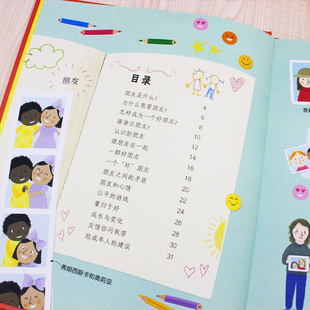 朋友
目录
朋友是什么? 4
为什么需要朋友? 6
怎样成为一个好朋友? 8
跟谁交朋友? 10
认识新朋友 12
跟朋友在一起 14
一群好朋友 16
一个“好”朋友 18
朋友之间的矛盾 20
朋友和心情 22
公平的游戏 24
重归于好 26
成长与变化 28
友情你问我答 30
给成年人的建议 31
弗朗西斯卡和奥莉亚